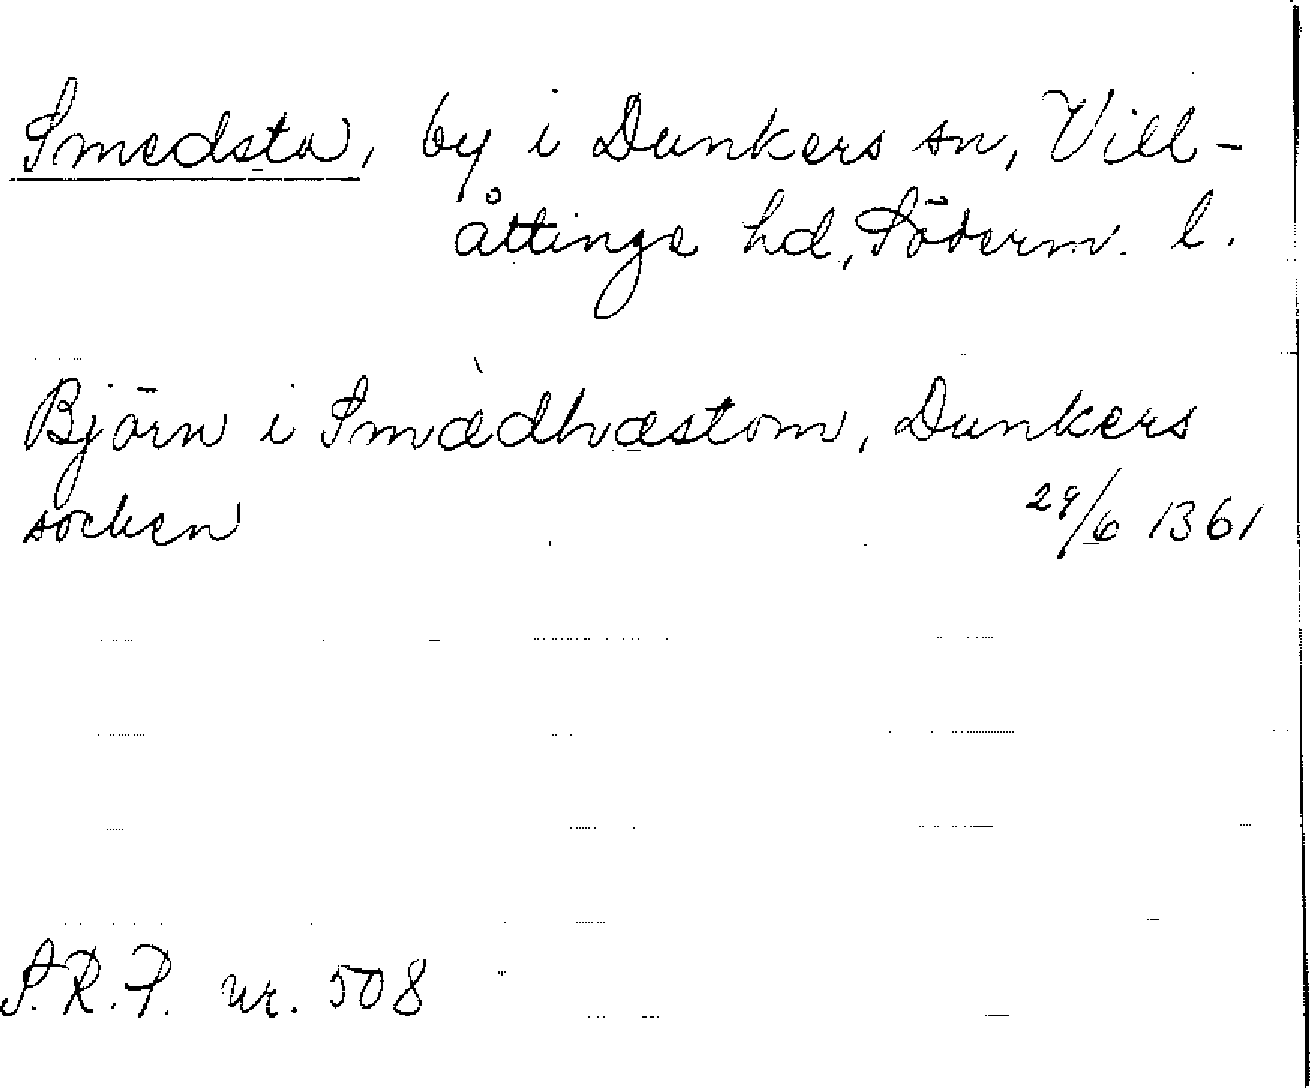 Smedsta, by i Dunkers sn, Vill-
åttinge hd, Söderm. l.
Björn i Smædhæstom, Dunkers
socken 29/6 1361
S.R.P. nr. 508